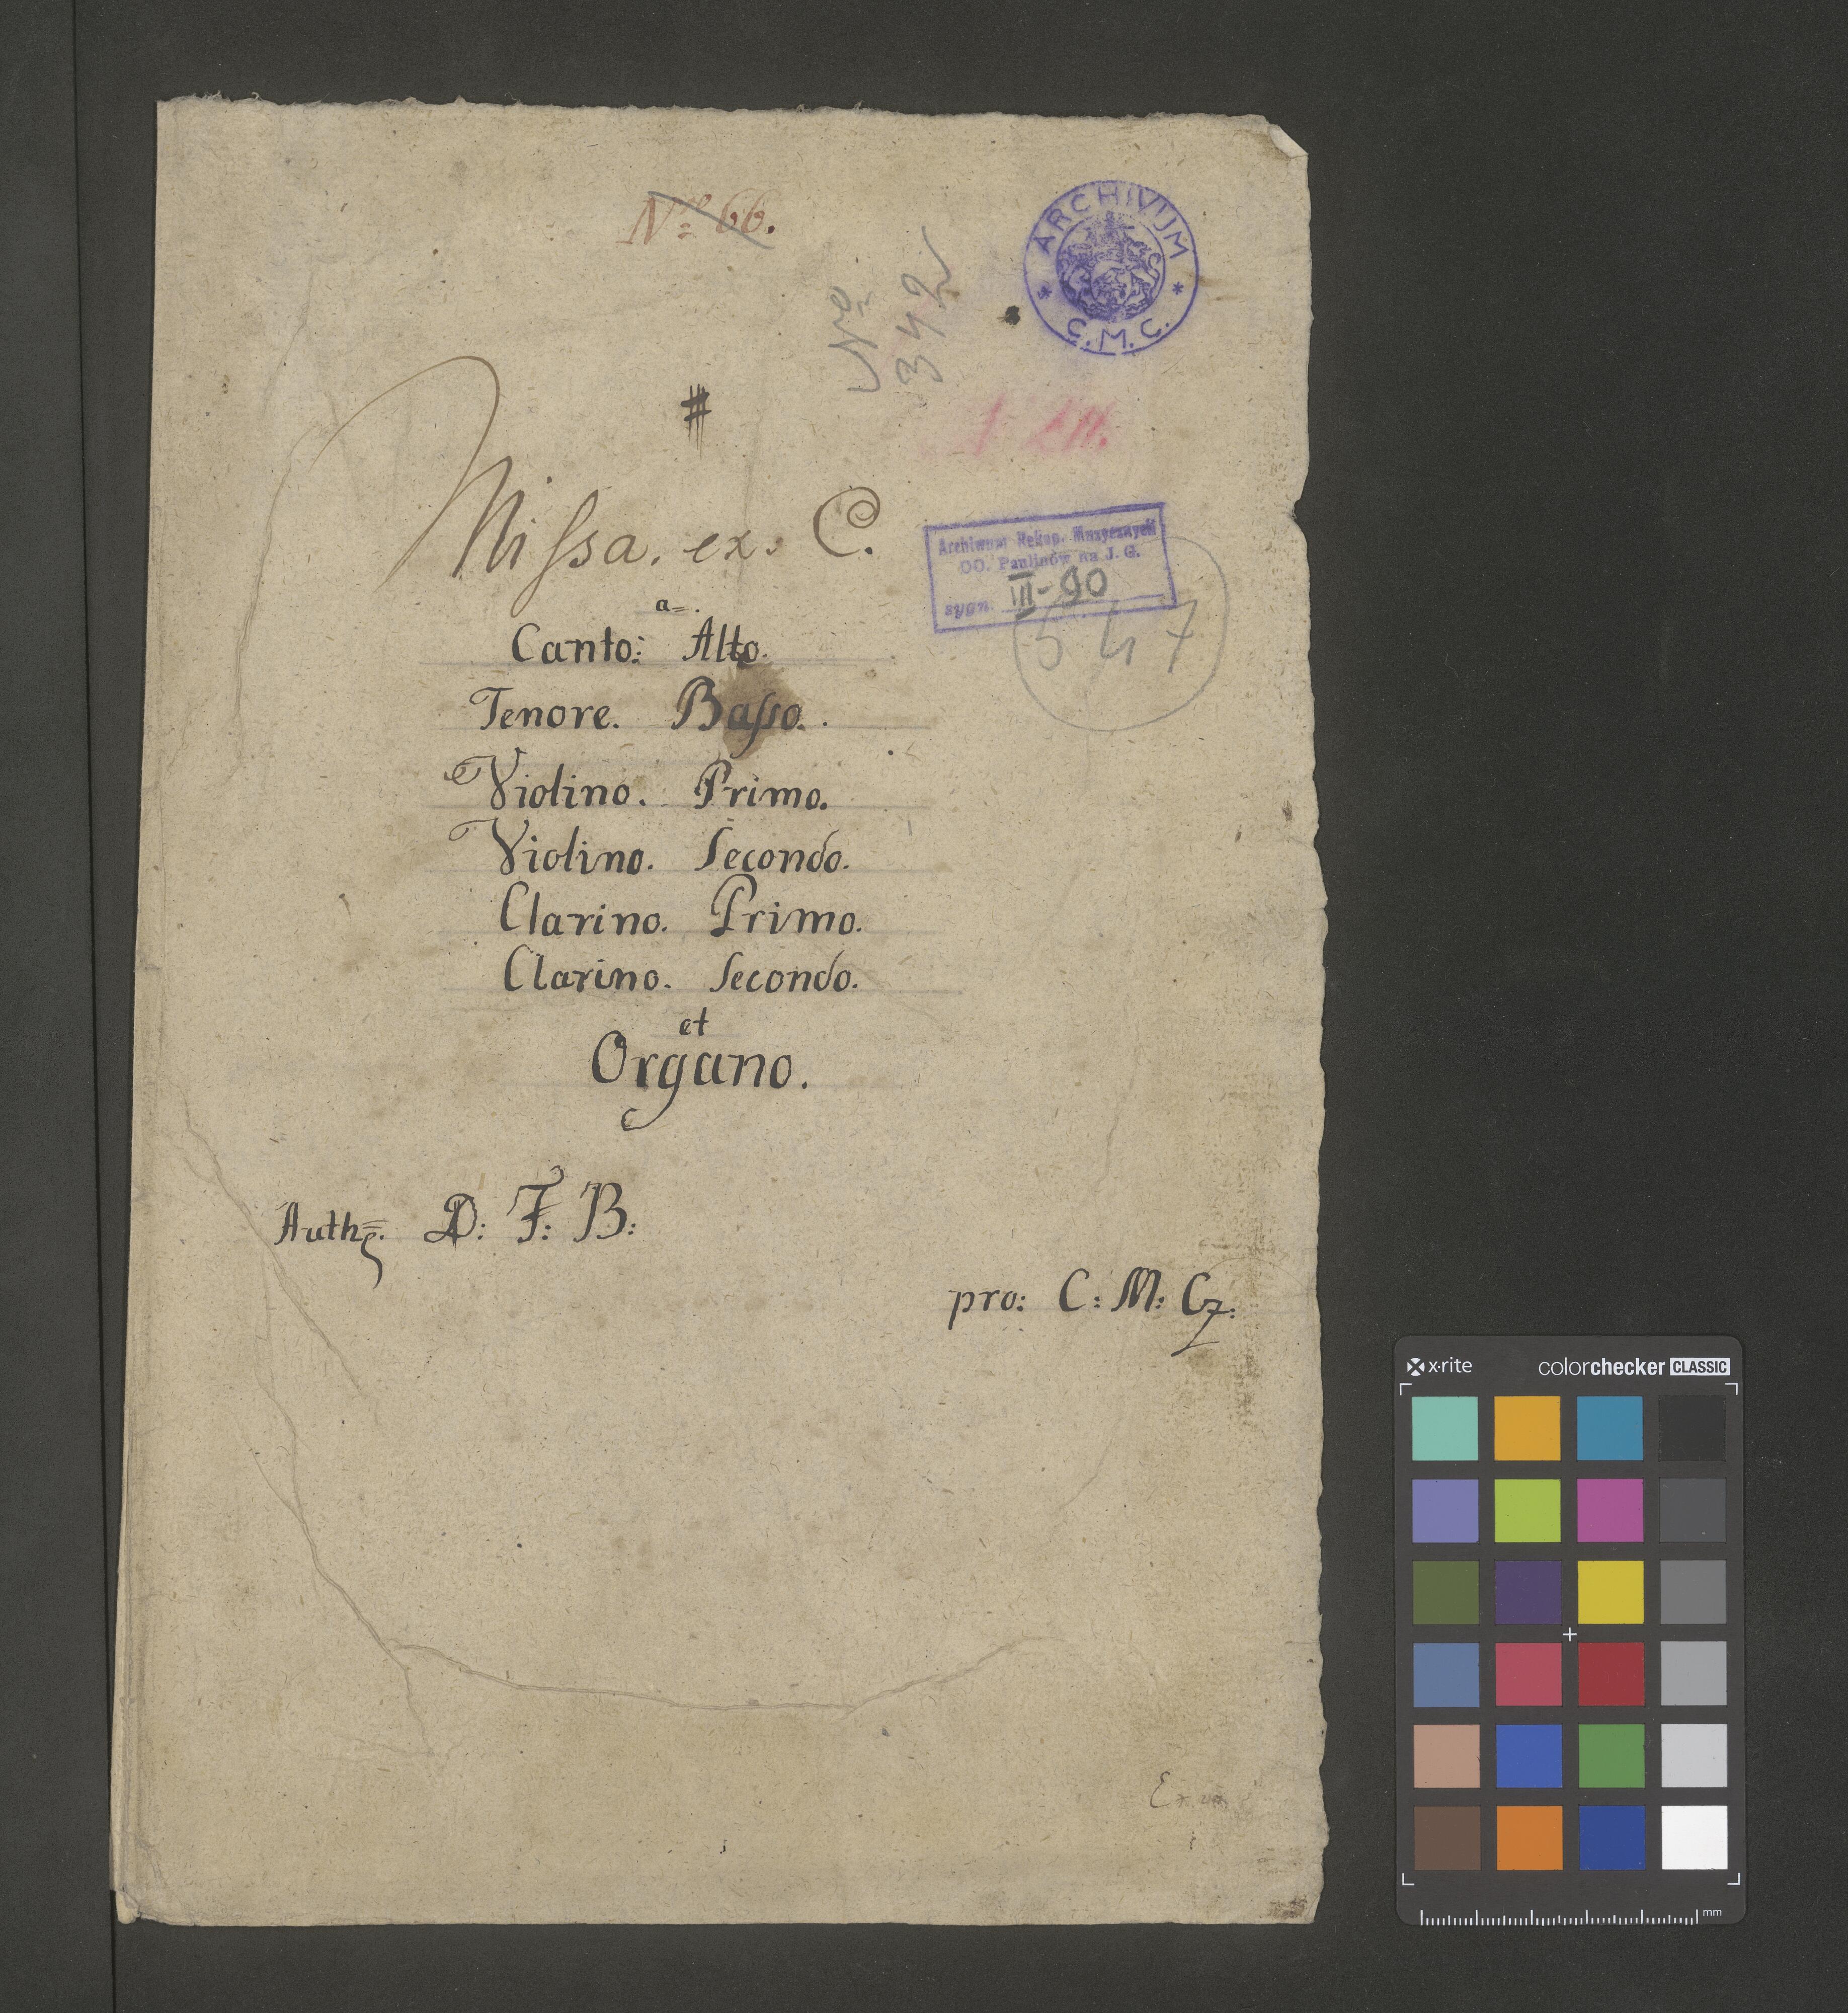 Nro 66.
ARCHIVUM
* C.M.C. *
Nro
342
#
Missa. ex. C.
Archiwum Rękop. Muzycznych
OO. Paulinów na J. G.
sygn. III-90
547
a=.
Canto: Alto.
Tenore. Basso.
Violino. Primo.
Violino. Secondo.
Clarino. Primo.
Clarino. Secondo.
et
Organo.
Auth. D: F: B:
pro: C: M: Cz:
x-rite colorchecker CLASSIC
mm